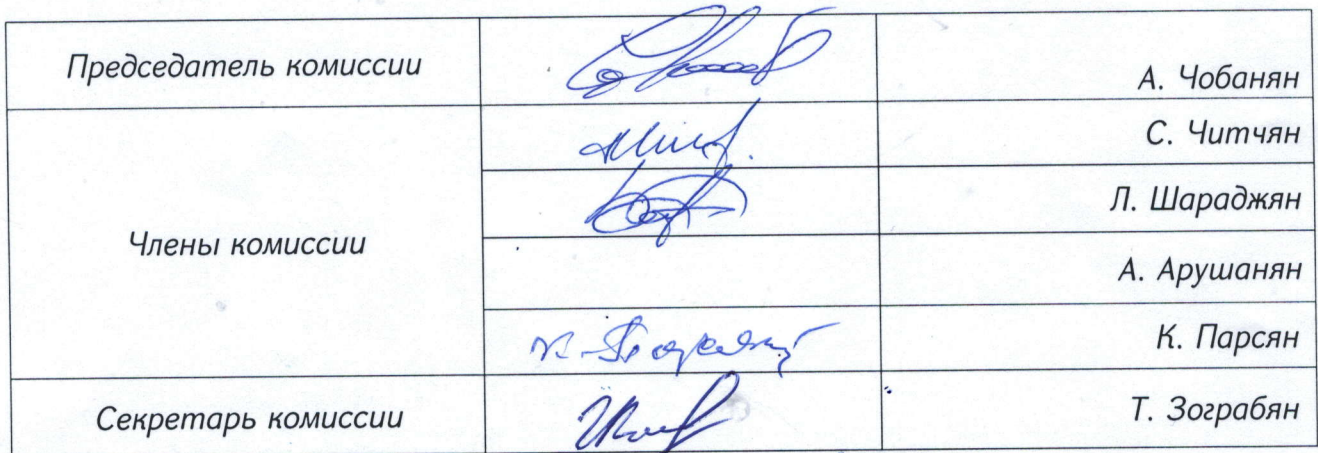 Председатель комиссии
А. Чобанян
С. Читчян
Члены комиссии
Л. Шараджян
А. Арушанян
К. Парсян
Секретарь комиссии
Т. Зограбян